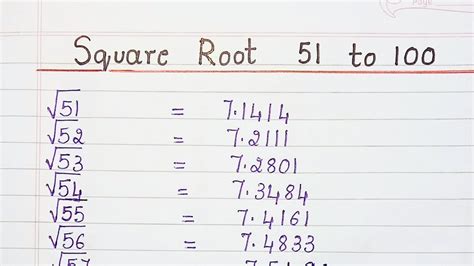 Page
Square Root 51 to 100
√51 = 7.1414
√52 = 7.2111
√53 = 7.2801
√54 = 7.3484
√55 = 7.4161
√56 = 7.4833
√57